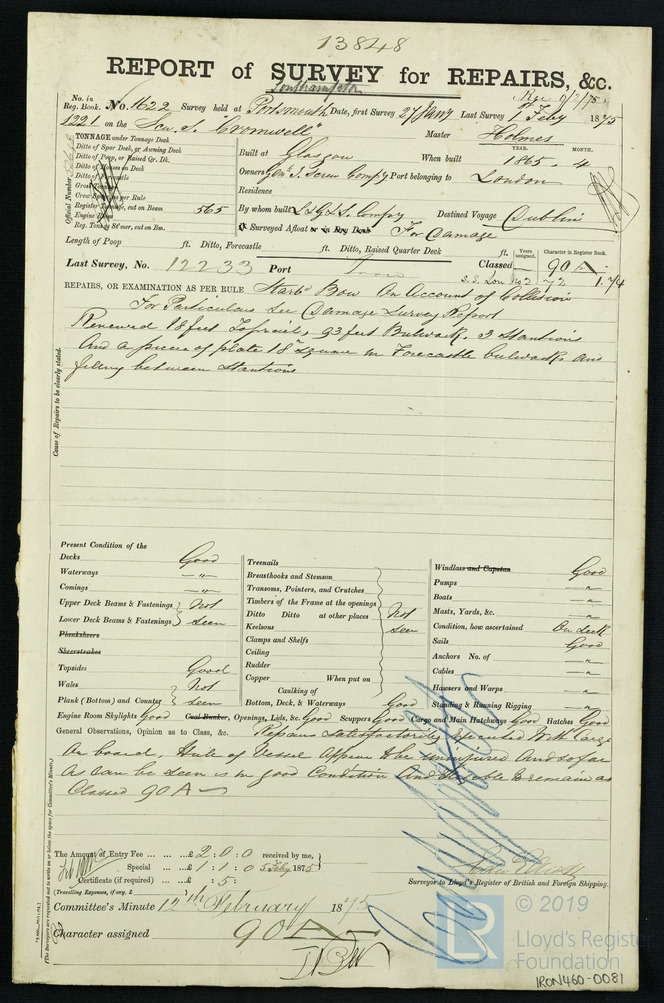 13848
REPORT of SURVEY for REPAIRS, &c.
Southampton
No. in Reg. Book. No. 1622 Survey held at Portsmouth Date, first Survey 27 Jany Last Survey 1 Feby 1875
1221 on the "Cromwell" Master Holmes
TONNAGE under Tonnage Deck
Ditto of Spar Deck, or Awning Deck
Ditto of Poop, or Raised Qr. Dk.
Ditto of Houses on Deck
Ditto of Forecastle
Gross Tonnage
Crew Space per Rule
Register Tonnage, cut on Beam 565
Engine Room
Reg. Ton. as St'mer, cut on Bm.
Official Number
Built at Glasgow When built 1865 - 4
YEAR. MONTH.
Owners Genl S. Screw Compy Port belonging to London
Residence
By whom built Compy Destined Voyage Dublin
If Surveyed Afloat or in Dry Dock For Damage
Length of Poop ft. Ditto, Forecastle ft. Ditto, Raised Quarter Deck ft.
Years assigned. Character in Register Book.
Last Survey, No. 12233 Port Lon Classed 90 A
S.S. Lon No 2 72 1.74
REPAIRS, OR EXAMINATION AS PER RULE Starbd Bow On Account of Collision
For Particulars see Damage Survey Report
Renewed 18 feet Toprail, 93 feet Bulwark, 3 Stantions
And a piece of plate 18" square in Forecastle bulwark And
filling between Stantions
Cause of Repairs to be clearly stated.
Present Condition of the
Decks Good
Waterways "
Comings "
Upper Deck Beams & Fastenings } Not
Lower Deck Beams & Fastenings } seen
Plankshears
Sheerstrakes
Topsides Good
Wales } Not
Plank (Bottom) and Counter } seen
Treenails
Breasthooks and Stemson
Transoms, Pointers, and Crutches
Timbers of the Frame at the openings
Ditto Ditto at other places Not
Keelsons seen
Clamps and Shelfs
Ceiling
Rudder
Copper When put on
Caulking of
Bottom, Deck, & Waterways Good
Windlass and Capstan Good
Pumps "
Boats "
Masts, Yards, &c. "
Condition, how ascertained On deck
Sails Good
Anchors No. of "
Cables "
Hawsers and Warps "
Standing & Running Rigging "
Engine Room Skylights Good Coal Bunker, Openings, Lids, &c. Good Scuppers Good Cargo and Main Hatchways Good Hatches Good
General Observations, Opinion as to Class, &c. Repairs Satisfactorily Executed With Cargo
On board. Hull of Vessel Appears to be uninjured And so far
As can be seen is in good Condition And eligible to remain as
Classed 90 A
The Amount of Entry Fee ... ... £ 2 : 0 : 0 received by me,
Special ... £ 1 : 1 : 0 5 Feby 1875
Certificate (if required) .. £ : 5 :
(Travelling Expenses, if any, £ )
Surveyor to Lloyd's Register of British and Foreign Shipping.
Committee's Minute 12th February 1875
Character assigned 90 A
© 2019
LR
Lloyd's Register
Foundation
IRON460-0081